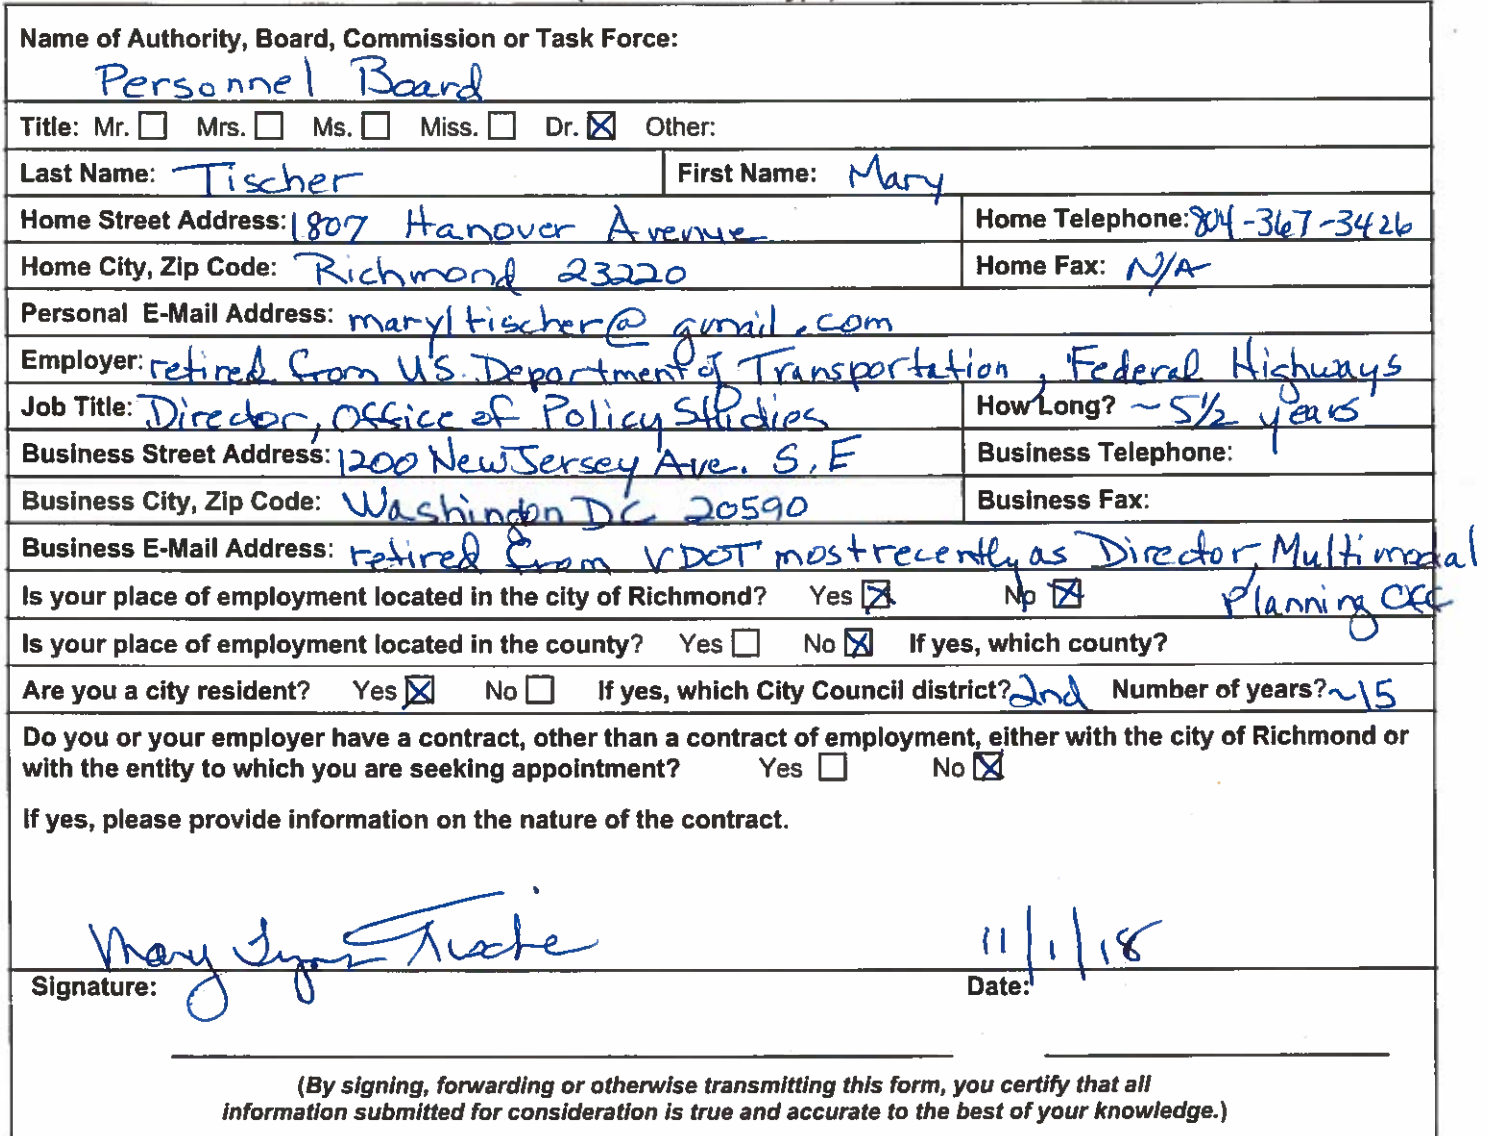 Name of Authority, Board, Commission or Task Force:
Personnel Board
Title: Mr. ☐ Mrs. ☐ Ms. ☐ Miss. ☐ Dr. ☒ Other:
Last Name: Tischer First Name: Mary
Home Street Address: 1807 Hanover Avenue Home Telephone: 804-367-3426
Home City, Zip Code: Richmond 23220 Home Fax: N/A
Personal E-Mail Address: maryltischer@gmail.com
Employer: retired from US. Department of Transportation, Federal Highways
Job Title: Director, Office of Policy Studies How Long? ~5½ years
Business Street Address: 1200 New Jersey Ave. S.E Business Telephone:
Business City, Zip Code: Washington DC 20590 Business Fax:
Business E-Mail Address: retired from VDOT most recently as Director, Multimodal
Is your place of employment located in the city of Richmond? Yes ☒ No ☒ Planning Off
Is your place of employment located in the county? Yes ☐ No ☒ If yes, which county?
Are you a city resident? Yes ☒ No ☐ If yes, which City Council district? 2nd Number of years? ~15
Do you or your employer have a contract, other than a contract of employment, either with the city of Richmond or
with the entity to which you are seeking appointment? Yes ☐ No ☒
If yes, please provide information on the nature of the contract.
Mary Lynn Tischer 11/1/18
Signature: Date:
(By signing, forwarding or otherwise transmitting this form, you certify that all
information submitted for consideration is true and accurate to the best of your knowledge.)